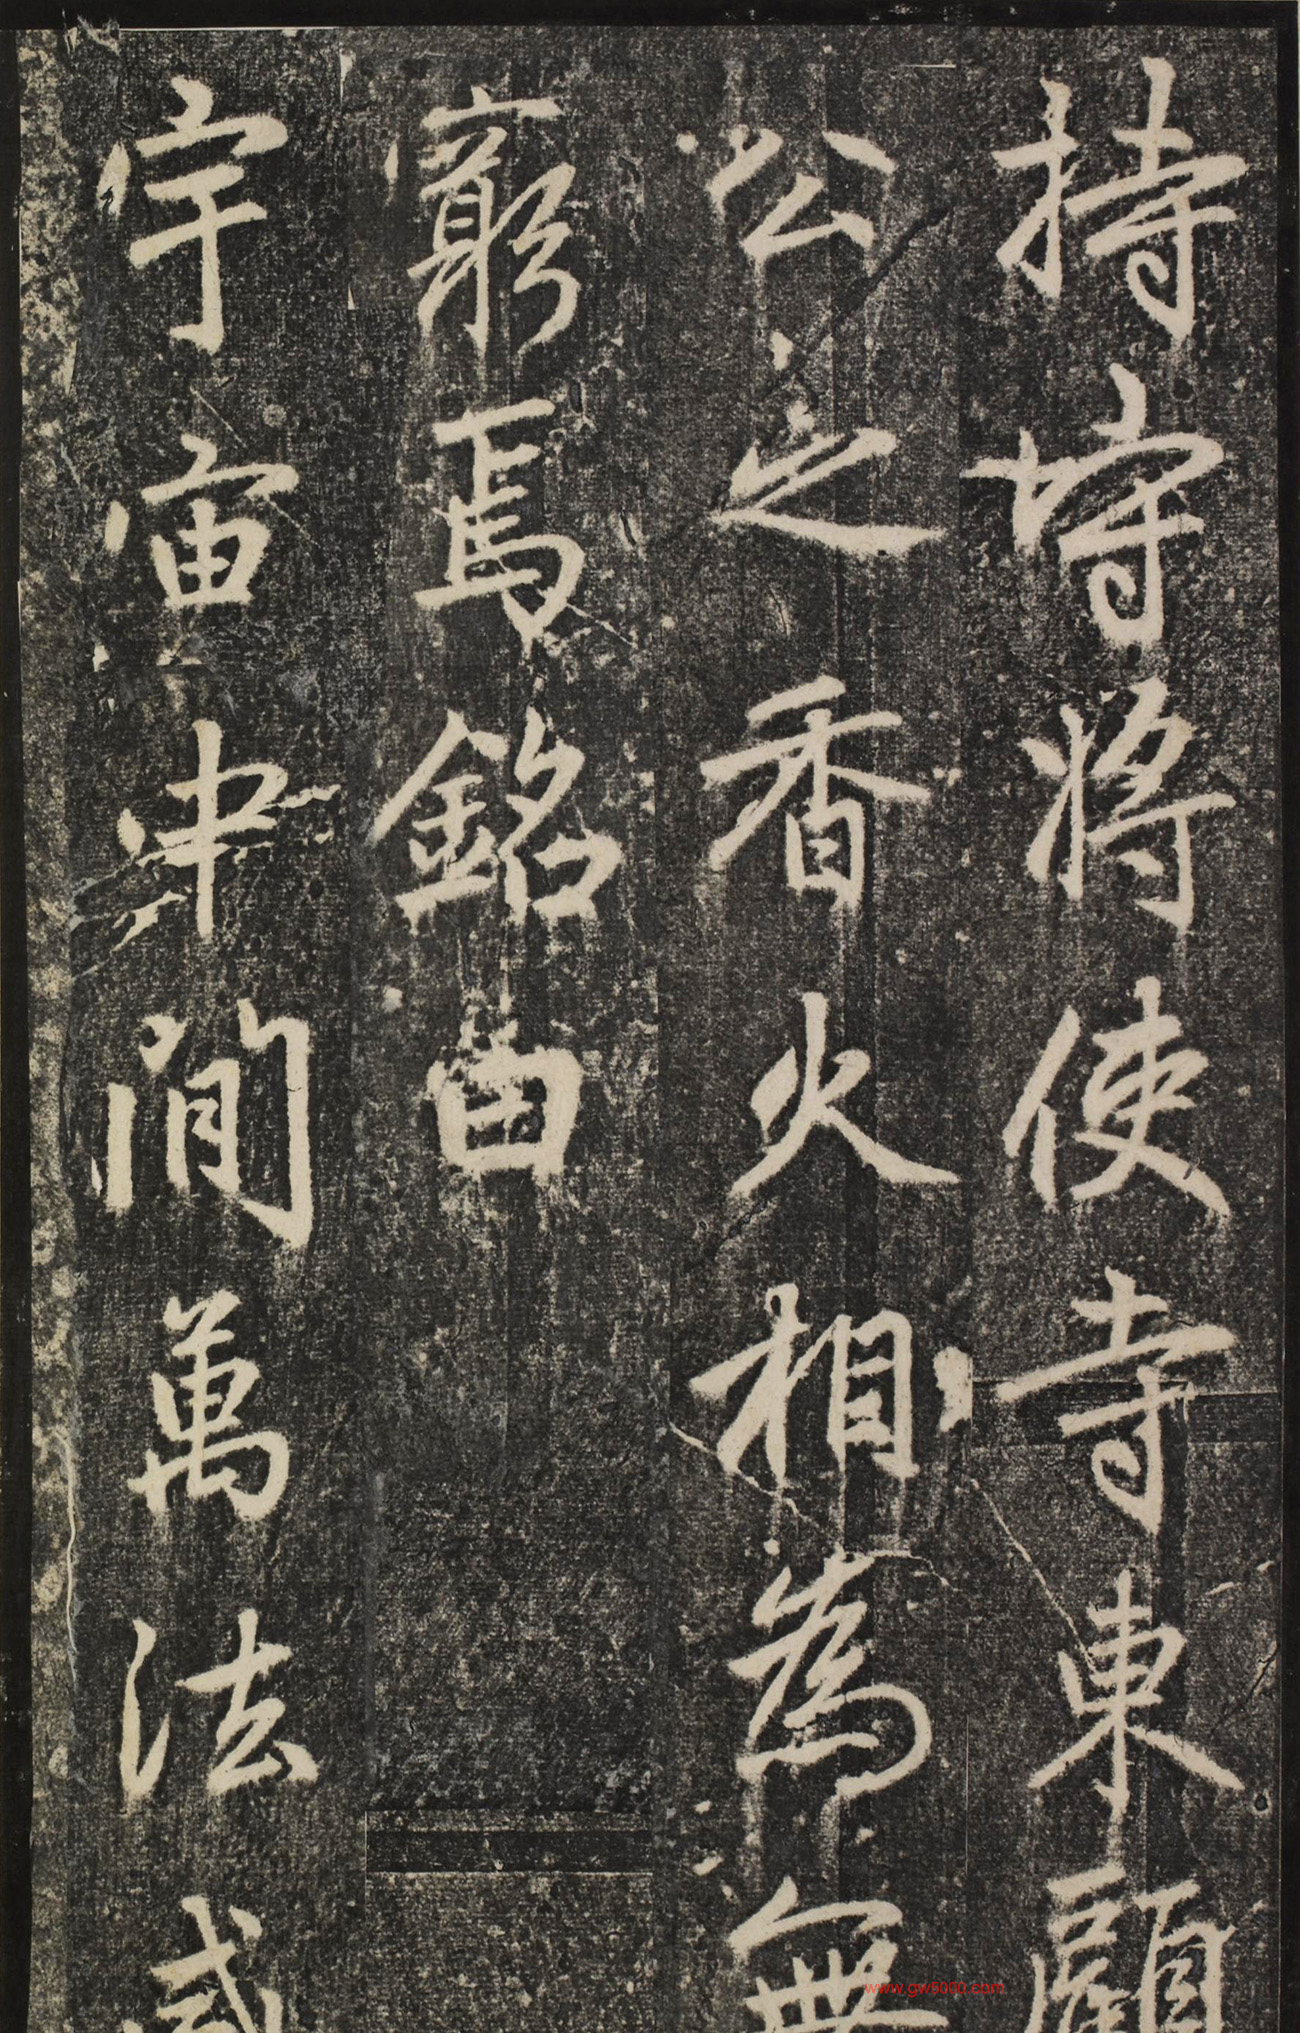 持守将使寺東顧
公之香火相為無
窮焉銘曰
宇宙中間萬法咸
www.gw8000.com